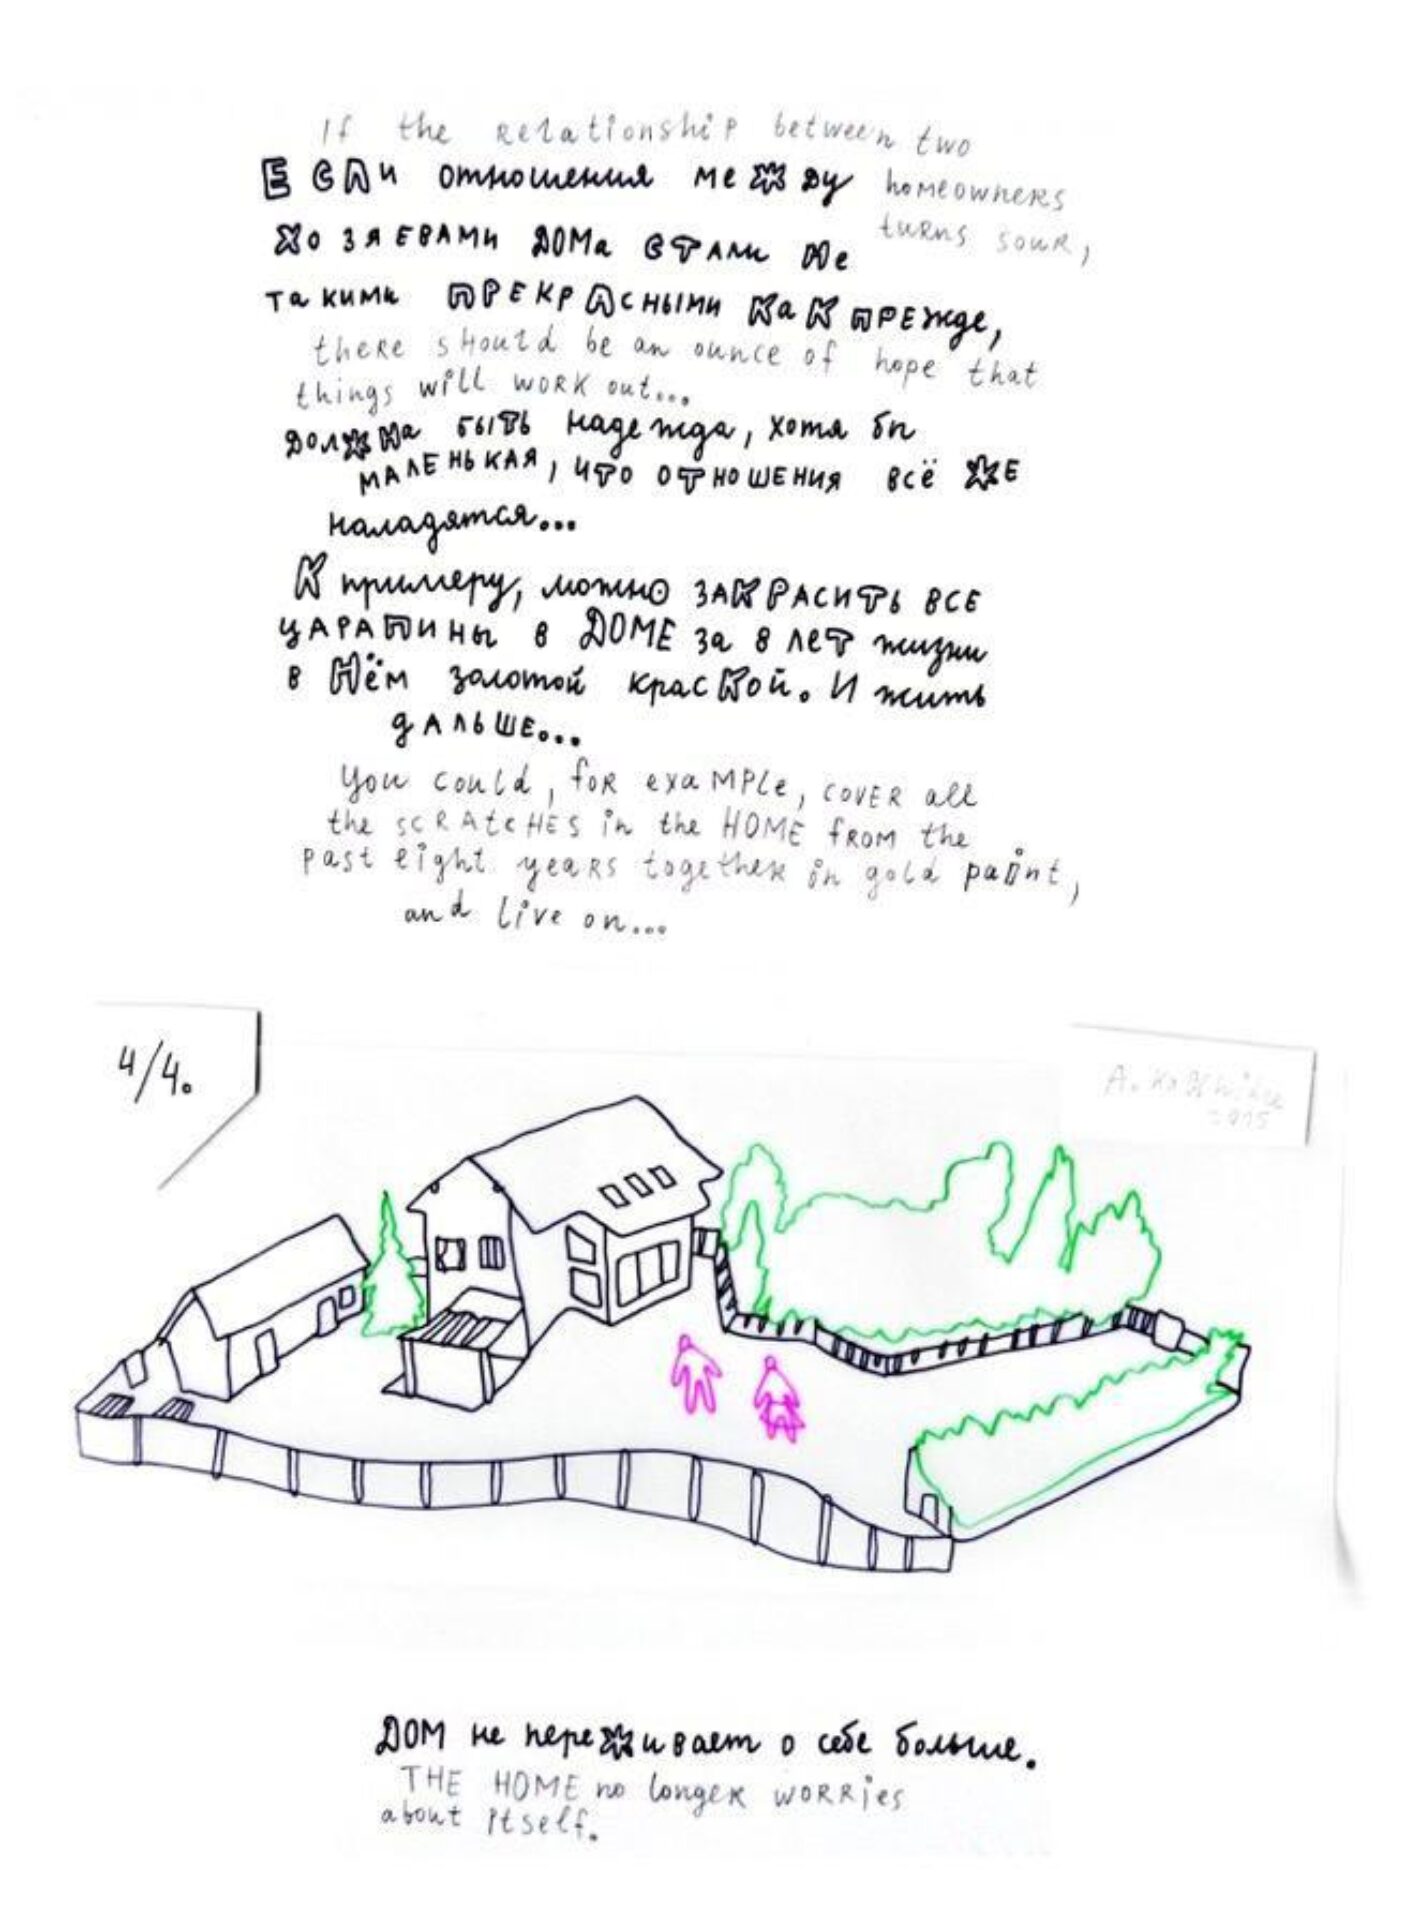 If the relationship between two
Если отношения между homeowners
хозяевами дома стали не turns sour,
такими прекрасными как прежде,
there should be an ounce of hope that
things will work out...
должна быть надежда, хотя бы
маленькая, что отношения всё же
наладятся...
К примеру, можно закрасить все
царапины в ДОМЕ за 8 лет жизни
в нём золотой краской. И жить
дальше...
You could, for example, cover all
the scratches in the HOME from the
past eight years together in gold paint,
and live on...
4/4.
A.
2015
ДОМ не переживает о себе больше.
THE HOME no longer worries
about itself.